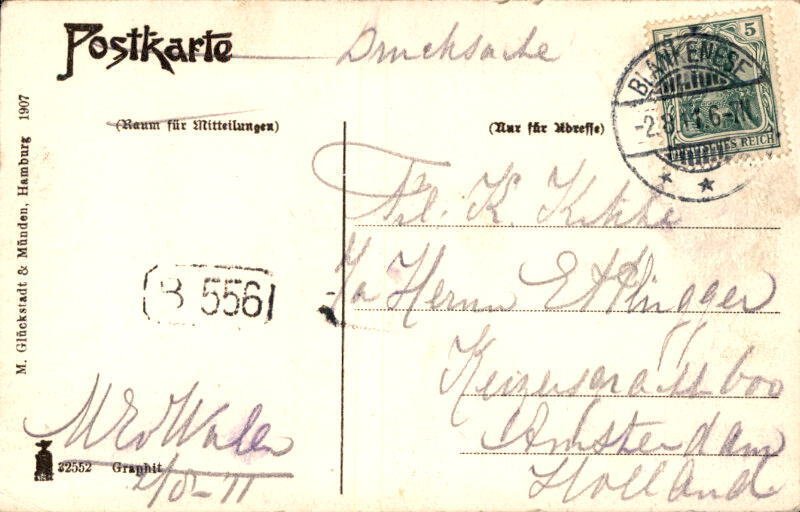 Postkarte
Drucksache
5
BLANKENESE
-2.8.11.6-7N
DEUTSCHES REICH
(Raum für Mitteilungen)
(Nur für Adresse)
M. Glückstadt & Münden, Hamburg 1907
Frl. K.
p/a Herrn
B 5561
Keizersgracht 600
Amsterdam
Holland
2/8-11
32552 Graphit